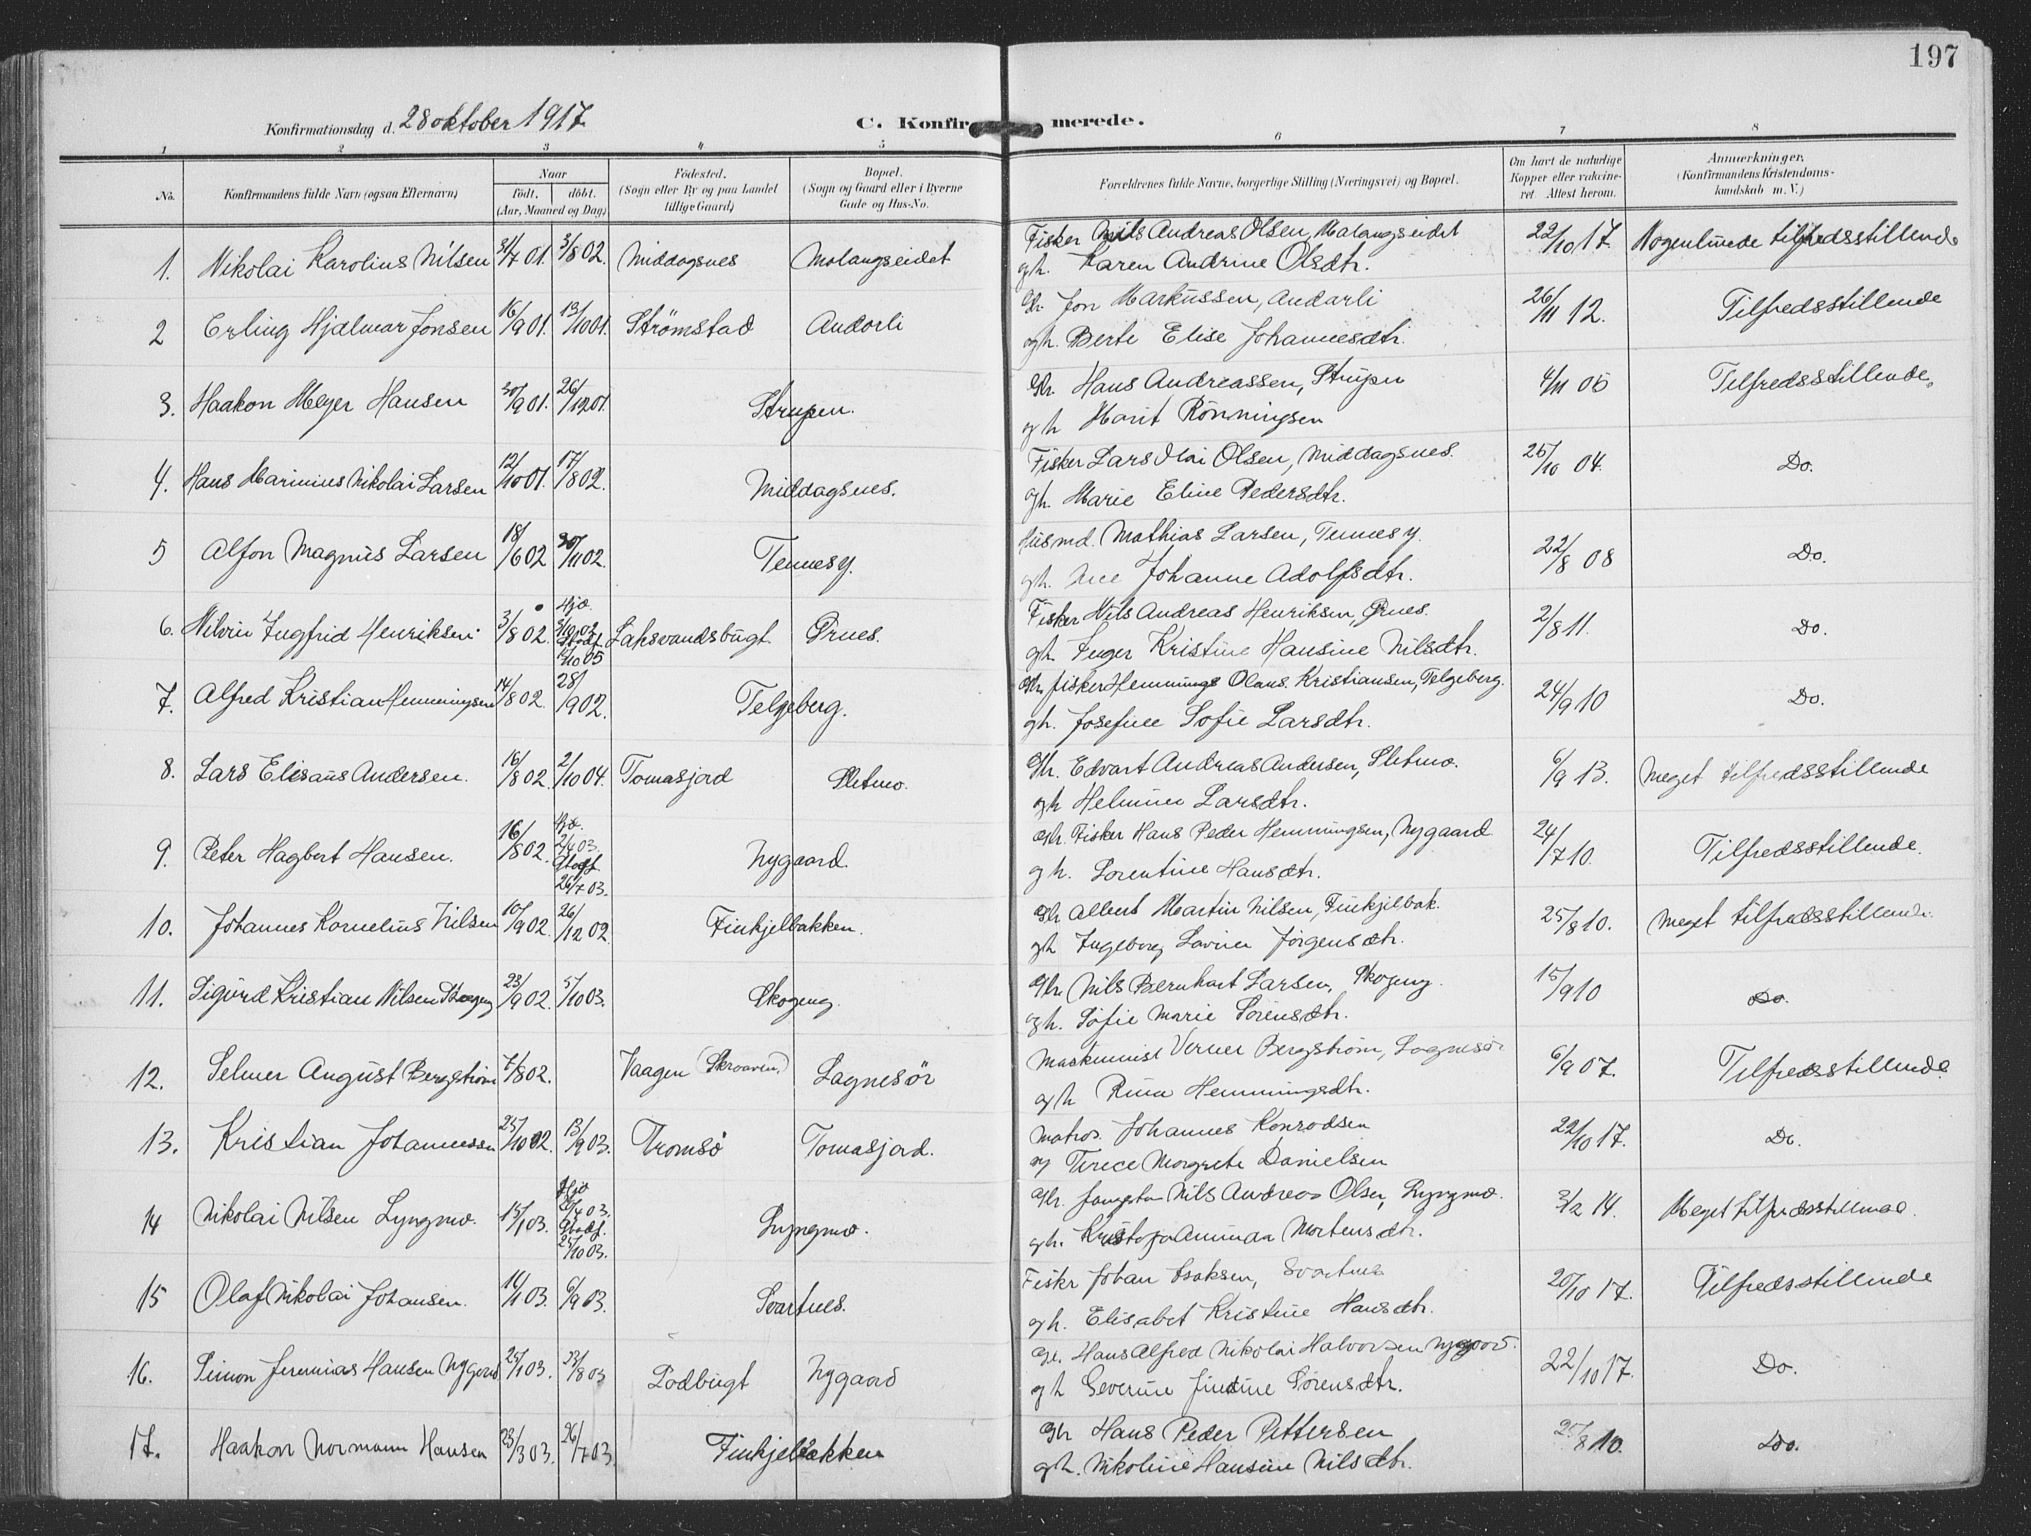 197
Konfirmationsdag d. 28 oktober 1917.
C. Konfirmerede.
1 2 3 4 5 6 7 8
No. Konfirmandens fulde Navn (ogsaa Efternavn) Naar født. døbt. (Aar, Maaned og Dag) Fødested. (Sogn eller By og paa Landet tillige Gaard) Bopæl. (Sogn og Gaard eller i Byerne Gade og Hus-No. Forældrenes fulde Navne, borgerlige Stilling (Næringsvei) og Bopæl. Om havt de naturlige Kopper eller vakcineret. Attest herom. Anmærkninger. (Konfirmandens Kristendomskundskab m. V.)
1. Nikolai Karolius Nilsen 31/7 01. 3/8 02. Middagsnes Malangseidet Fisker Nils Andreas Olsen, Malangseidet 22/10 17. Nogenlunde tilfredsstillende
gh. Karen Andrine Olsdtr.
2 Erling Hjalmar Jonsen 16/9 01. 13/10 01. Strømstad Andarli Gbr. Jon Markussen, Andarli 26/11 12. Tilfredsstillende
ogh. Berte Elise Johannesdtr.
3. Haakon Meyer Hansen 30/9 01. 26/12 01. Strupen. Gbr. Hans Andreassen, Strupen 4/11 05 Tilfredsstillende.
ogh Marit Rønningsen
4. Hans Marinius Nikolai Larsen 12/10 01. 17/8 02. Middagsnes. Fisker Lars Olai Olsen, Middagsnes. 25/10 04. Do.
gh. Marie Eline Pedersdtr.
5 Alfon Magnus Larsen 18/6 02 30/11 02. Tennesy. Husmd. Mathias Larsen, Tennesy. 22/8 08 Do.
gh. Johanne Adolfsdtr.
6. Nilvin Ingfrid Henriksen. 3/8 02. Hjd. 5/10 02 Stadf. 15/10 05 Laksvandsbugt Grnes. Fisker Nils Andreas Henriksen, Grnes. 2/8 11. Do.
gh. Inger Kristine Hansine Nilsdtr.
7. Alfred Kristian Henningsen 14/8 02. 28/9 02. Telgeberg. Gbr. fisker Hemmings Olaus Kristiansen, Telgeberg. 24/9 10 Do.
gh. Josefine Sofie Larsdtr.
8. Lars Elisaus Andersen. 16/8 02. 2/10 04. Tomasjord Sletmo. Gbr. Edvart Andreas Andersen, Sletmo. 6/9 13. Meget tilfredsstillende
gh Helmine Larsdtr.
9. Peter Hagbert Hansen. 16/8 02. Hjd. 2/4 03. Stadf. 26/7 03. Nygaard. Gbr. Fisker Hans Peder Hemmingsen, Nygaard 24/7 10. Tilfredsstillende.
gh. Lorentine Hansdtr.
10. Johannes Kornelius Nilsen 10/9 02. 26/12 02. Finkjelbakken. Gbr Albert Martin Nilsen, Finkjelbak. 25/8 10. Meget tilfredsstillende.
gh Ingeborg Lovise Jørgensdtr.
11. Sigurd Kristian Nilsen Skogeng 23/9 02. 5/10 03. Skogeng. Gbr. Nils Bernhart Larsen, Skogeng. 15/9 10 Do.
gh. Sofie Marie Sørensdtr.
12. Selmer August Bergstrøm 7/8 02. Vaagen (Skroaven) Lagnesør Maskinnist Verner Bergstrøm, Lagnesør 6/9 07. Tilfredsstillende.
ogh Rina Hemmingsdtr.
13. Kristian Johannessen 25/10 02. 13/9 03. Tromsø Tomasjord. Matros. Johannes Konradsen 22/10 17. Do.
og Terece Margrete Danielsen
14 Nikolai Nilsen Lyngmo. 15/1 03. Hjd 4 03. Stadf. 25/10 03. Lyngmo. Gbr. Nils Andreas Olsen, Lyngmo. 3/2 14. Meget tilfredsstillende.
gh. Aminda Mortensdtr.
15 Olaf Nikolai Johansen. 16/1 03. 6/9 03. Svartnes. Fisker Johan Isaksen, Svartnes 20/10 17. Tilfredsstillende
gh. Elisabet Kristine Hansdtr.
16. Simon Jeremias Hansen Nygaard 25/1 03. 23/8 03 Sodbugt Nygaard Gbr. Hans Alfred Nikolai Halvorsen Nygaard. 22/10 17. Do.
gh Severine Sørensdtr.
17. Haakon Normann Hansen 23/3 03. 26/7 03. Finkjelbakken Gbr Hans Peder Pettersen 25/8 10. Do.
gh. Nikoline Hansine Nilsdtr.